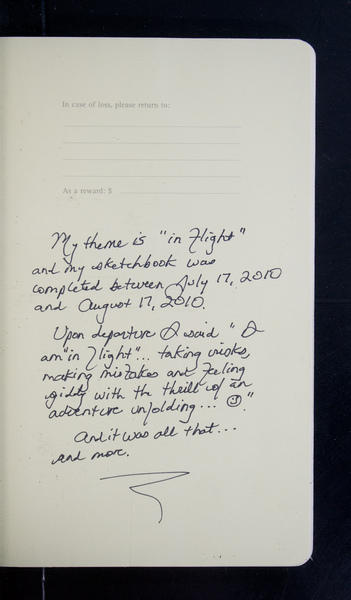 In case of loss, please return to:
As a reward: $
My theme is "in flight"
and my sketchbook was
completed between July 17, 2010
and August 17, 2010.
Upon departure I said "I
am "in flight"... taking risks,
making mistakes and feeling
giddy with the thrill of an
adventure unfolding... ☺".
And it was all that...
and more.